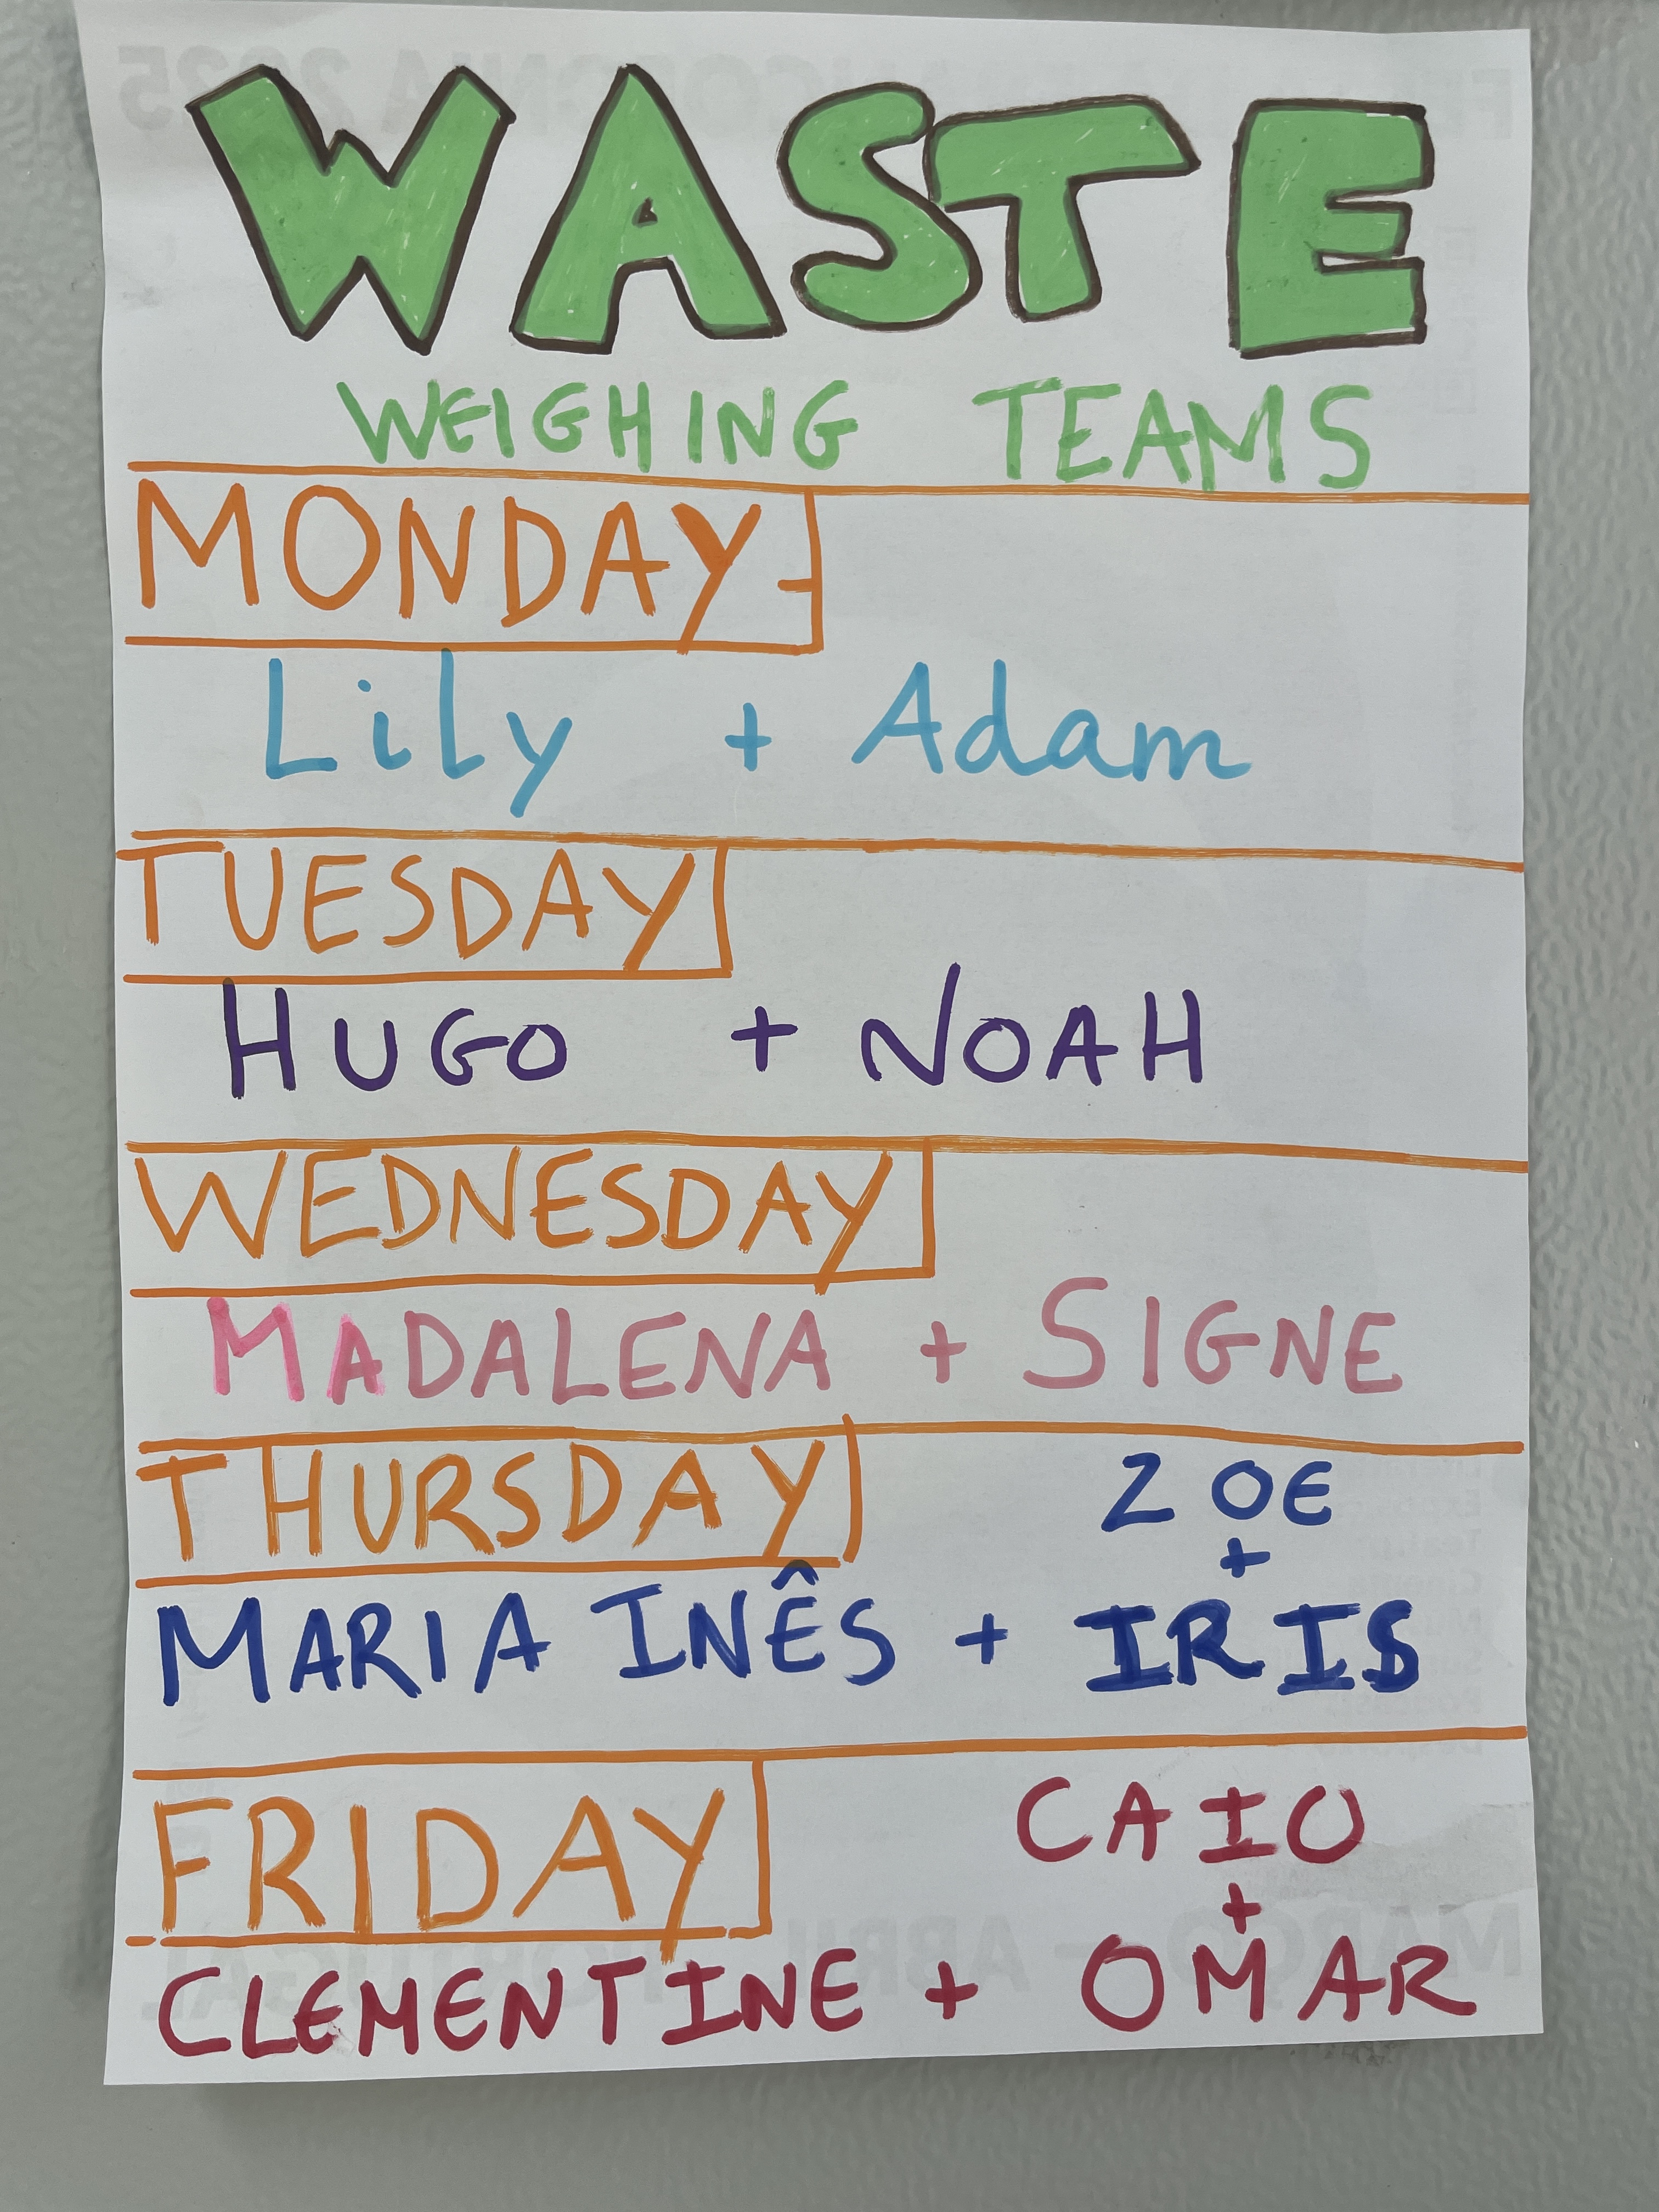 WASTE
WEIGHING TEAMS
MONDAY
Lily + Adam
TUESDAY
HUGO + NOAH
WEDNESDAY
MADALENA + SIGNE
THURSDAY
ZOE
+
MARIA INÊS + IRIS
FRIDAY
CAIO
+
CLEMENTINE + OMAR